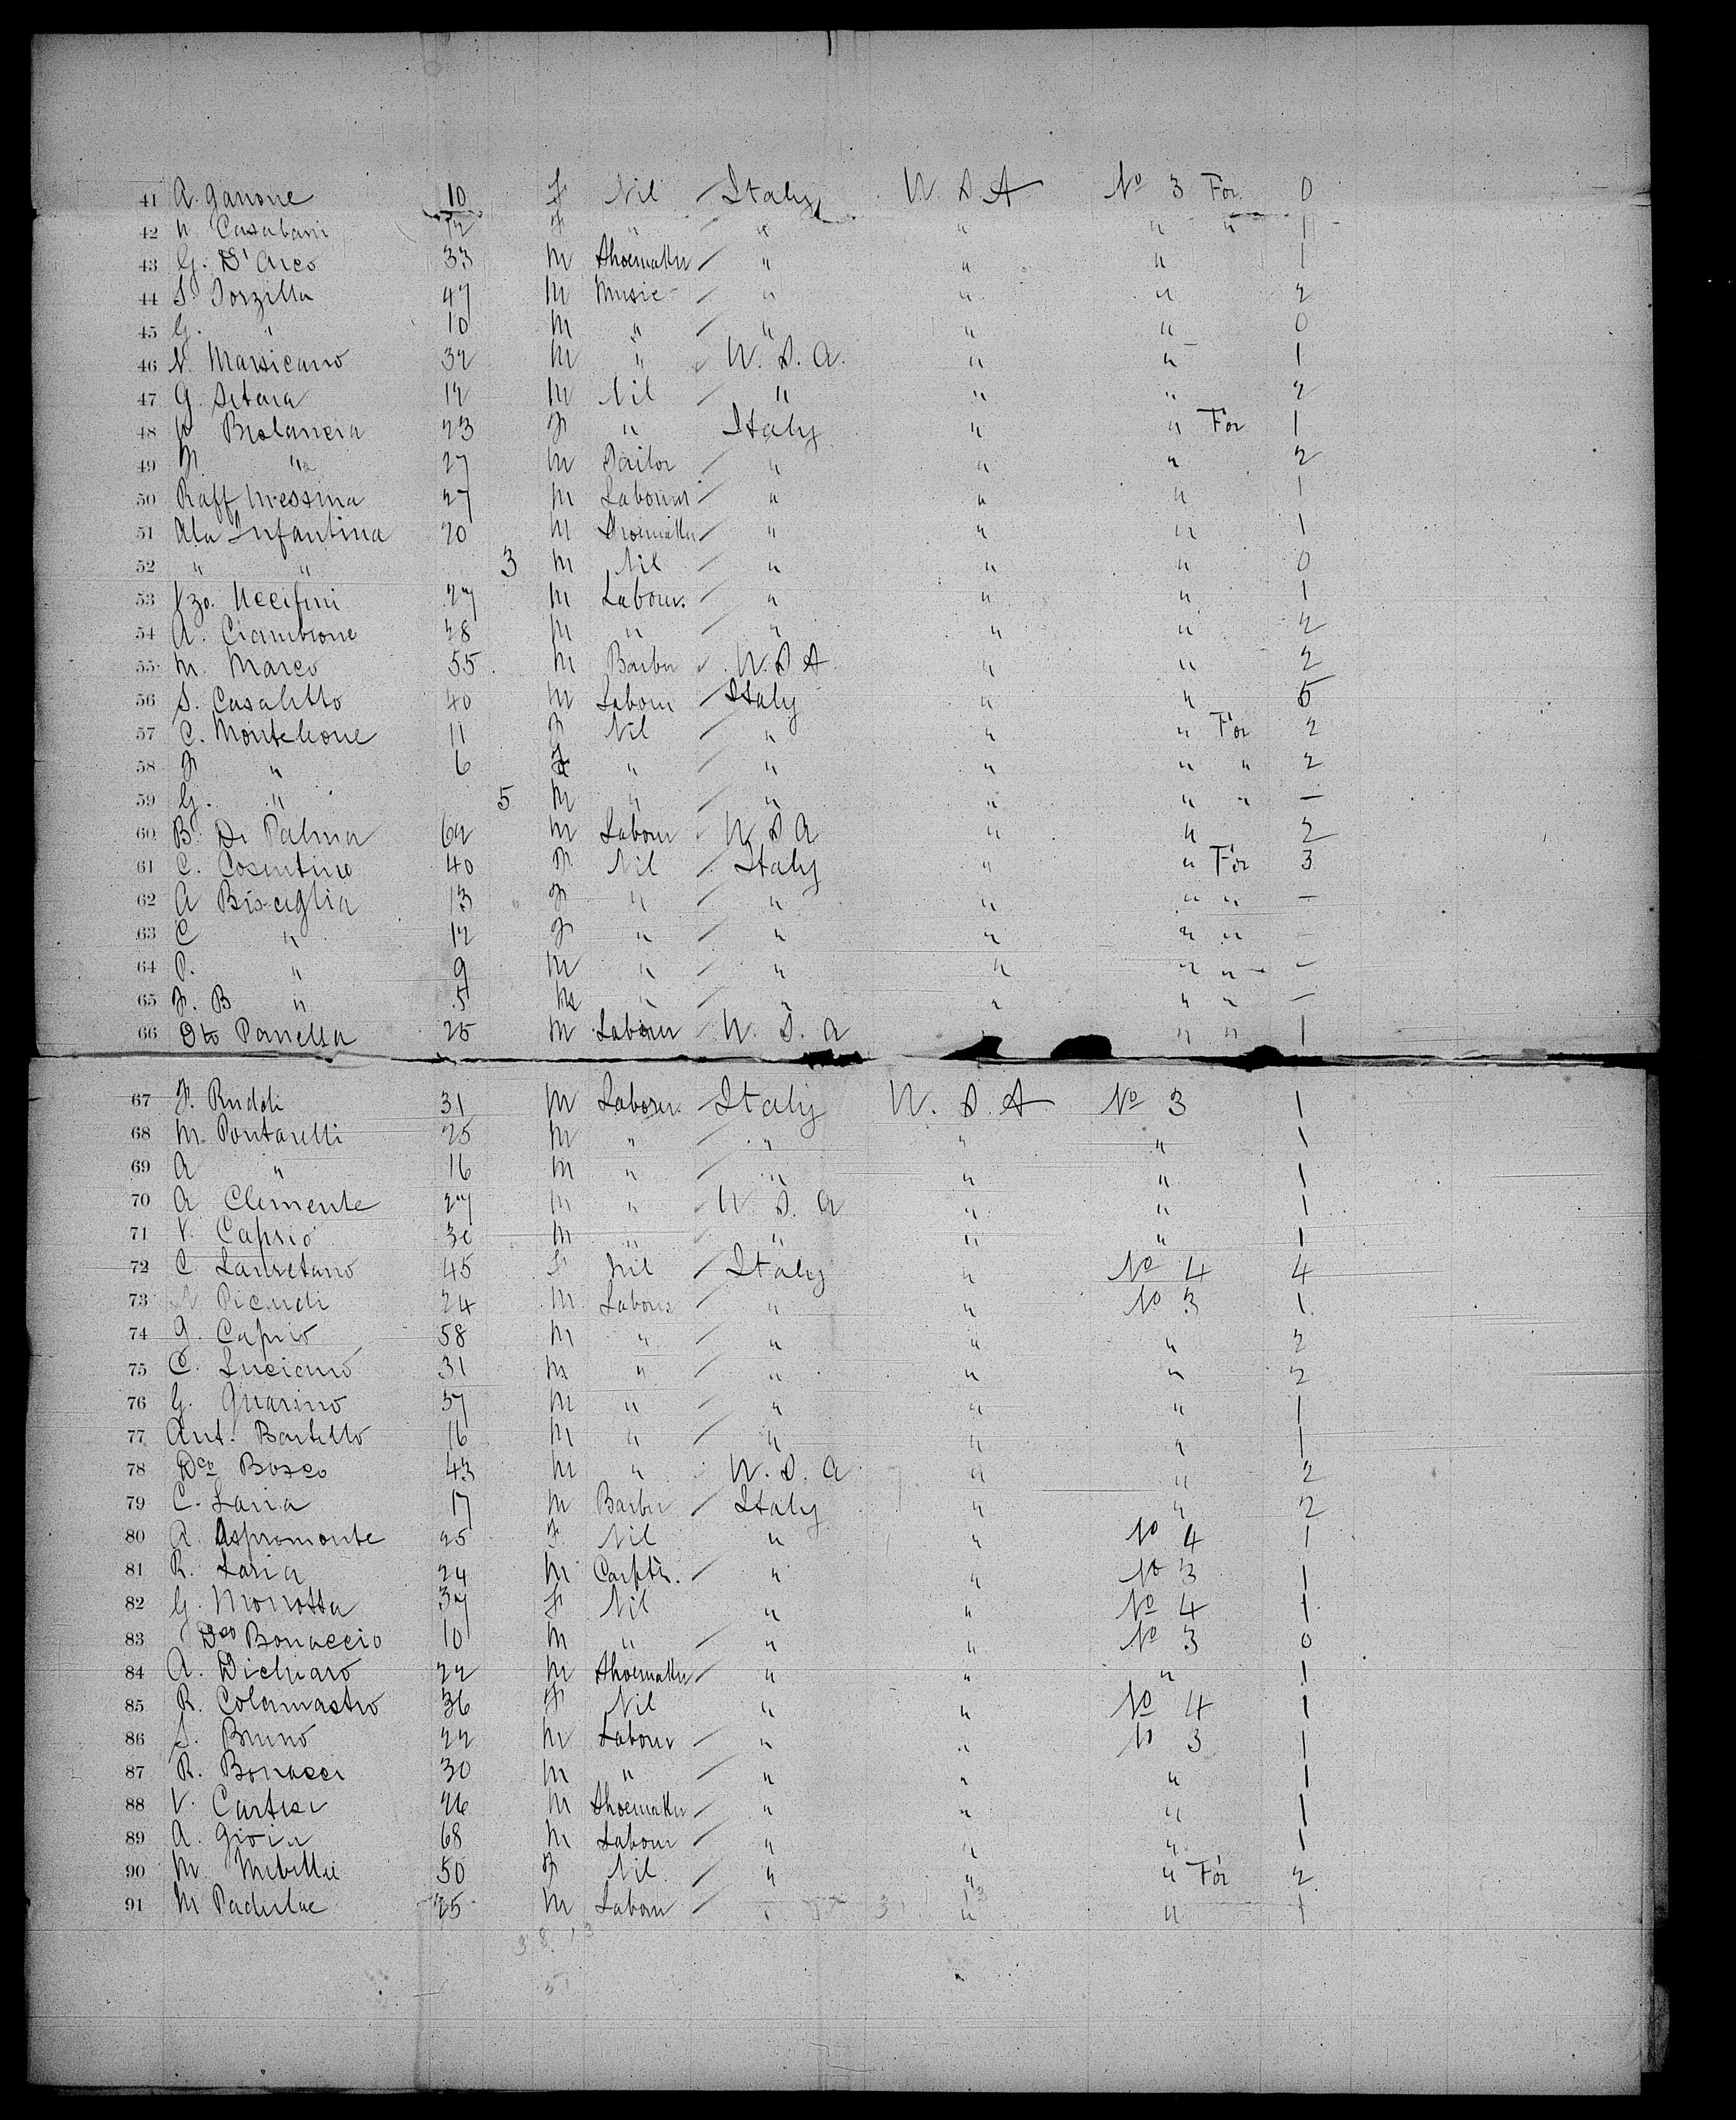 41 A. Ganone 10 F Nil / Italy U.S.A No 3 For 0
42 N. Casabani 12 F " " " " " 1
43 G. D'Arco 33 M Shoemaker / " " " 1
44 S. Torzilla 47 M Music / " " " 2
45 G. " 10 M " / " " " 0
46 N. Marsicano 32 M " U.S.A. " " 1
47 G. Setara 12 M Nil / " " " 2
48 Bislancia 23 F " Italy " " For 1
49 M " 27 M Tailor / " " " 2
50 Raff Messina 27 M Labourer / " " " 1
51 Infantina 20 M Shoemaker / " " " 1
52 " " 3 M Nil / " " " 0
53 Vzo. Uccifini 27 M Labour. / " " " 1
54 A. Ciambrone 28 M " / " " " 2
55 M. Marco 55 M Barber U.S.A " " 2
56 S. Casaletto 40 M Labour / Italy " " 5
57 C. Monteleone 11 F Nil / " " " For 2
58 F " 6 F " / " " " " 2
59 G. " 5 M " / " " " " —
60 B. Di Palma 62 M Labour U.S.A " " 2
61 C. Cosentino 40 F Nil / Italy " " For 3
62 A Bisceglia 13 F " / " " " " —
63 C " 12 F " / " " " " —
64 P. " 9 M " / " " " " —
65 F. B " 5 M " / " " " " —
66 Panella 25 M Labour U.S.A " " " 1
67 F. Ruddi 31 M Labour. / Italy U.S.A No 3 1
68 M. Pontarelli 25 M " / " " " 1
69 A " 16 M " / " " " 1
70 A Clemente 27 M " U.S.A " " 1
71 V. Caprio M " " " " 1
72 C. Lauretano 45 F Nil / Italy " No 4 4
73 Picudi 24 M Labour / " " No 3 1
74 G. Caprio 58 M " / " " " 2
75 C. Luciano 31 M " / " " " 2
76 G. Guarino 37 M " / " " " 1
77 Ant. Bartello 16 M " / " " " 1
78 Dco Bosco 43 M " U.S.A " " 2
79 C. Laria 17 M Barber / Italy " " 2
80 A. Aspromonte 25 F. Nil " " No 4 1
81 R. Laria 24 M Carptr. / " " No 3 1
82 G. Morrotta 37 F Nil " " No 4 1
83 Dco Bonaccio 10 M " / " " No 3 0
84 A. Dichiaro 22 M Shoemaker / " " " 1
85 R. Colamastro 36 F Nil " " No 4 1
86 S. Bruno 22 M Labour / " " No 3 1
87 R. Bonacci 30 M " / " " " 1
88 V. Cartesi 26 M Shoemaker / " " " 1
89 A. Gioia 68 M Labour / " " " 1
90 M. 50 F Nil / " " " For 2
91 M Padulae 25 M Labour " " 1